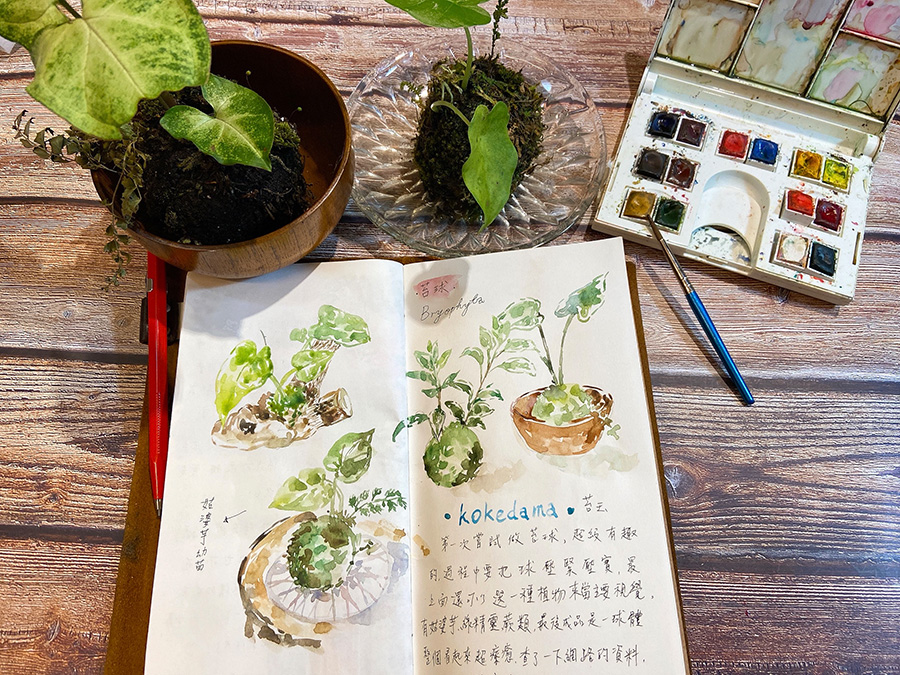 苔球
Bryophyta
姑婆芋幼苗
• kokedama • 苔玉
第一次嘗試做苔球,超級有趣
的,過程中要把球壓緊壓實,最
上面還可以選一種植物來當主要視覺,
有姑婆芋,綠精靈,蕨類,最後成品是一球體
整個看起來超療癒,查了一下網路的資料,